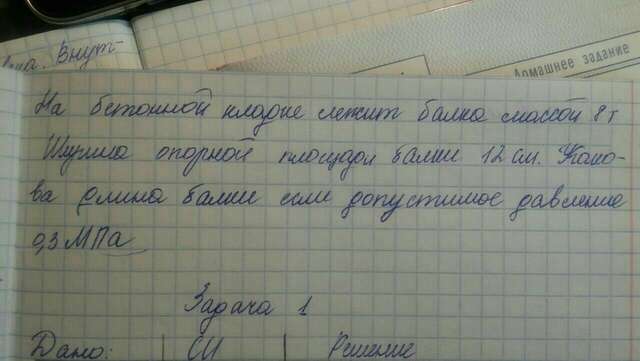 Внут-
Домашнее задание
На бетонной кладке лежит балка массой 8 т
Ширина опорной площади балки 12 см. Како-
ва длина балки если допустимое давление
0,3 МПа
Задача 1
Дано: СИ Решение